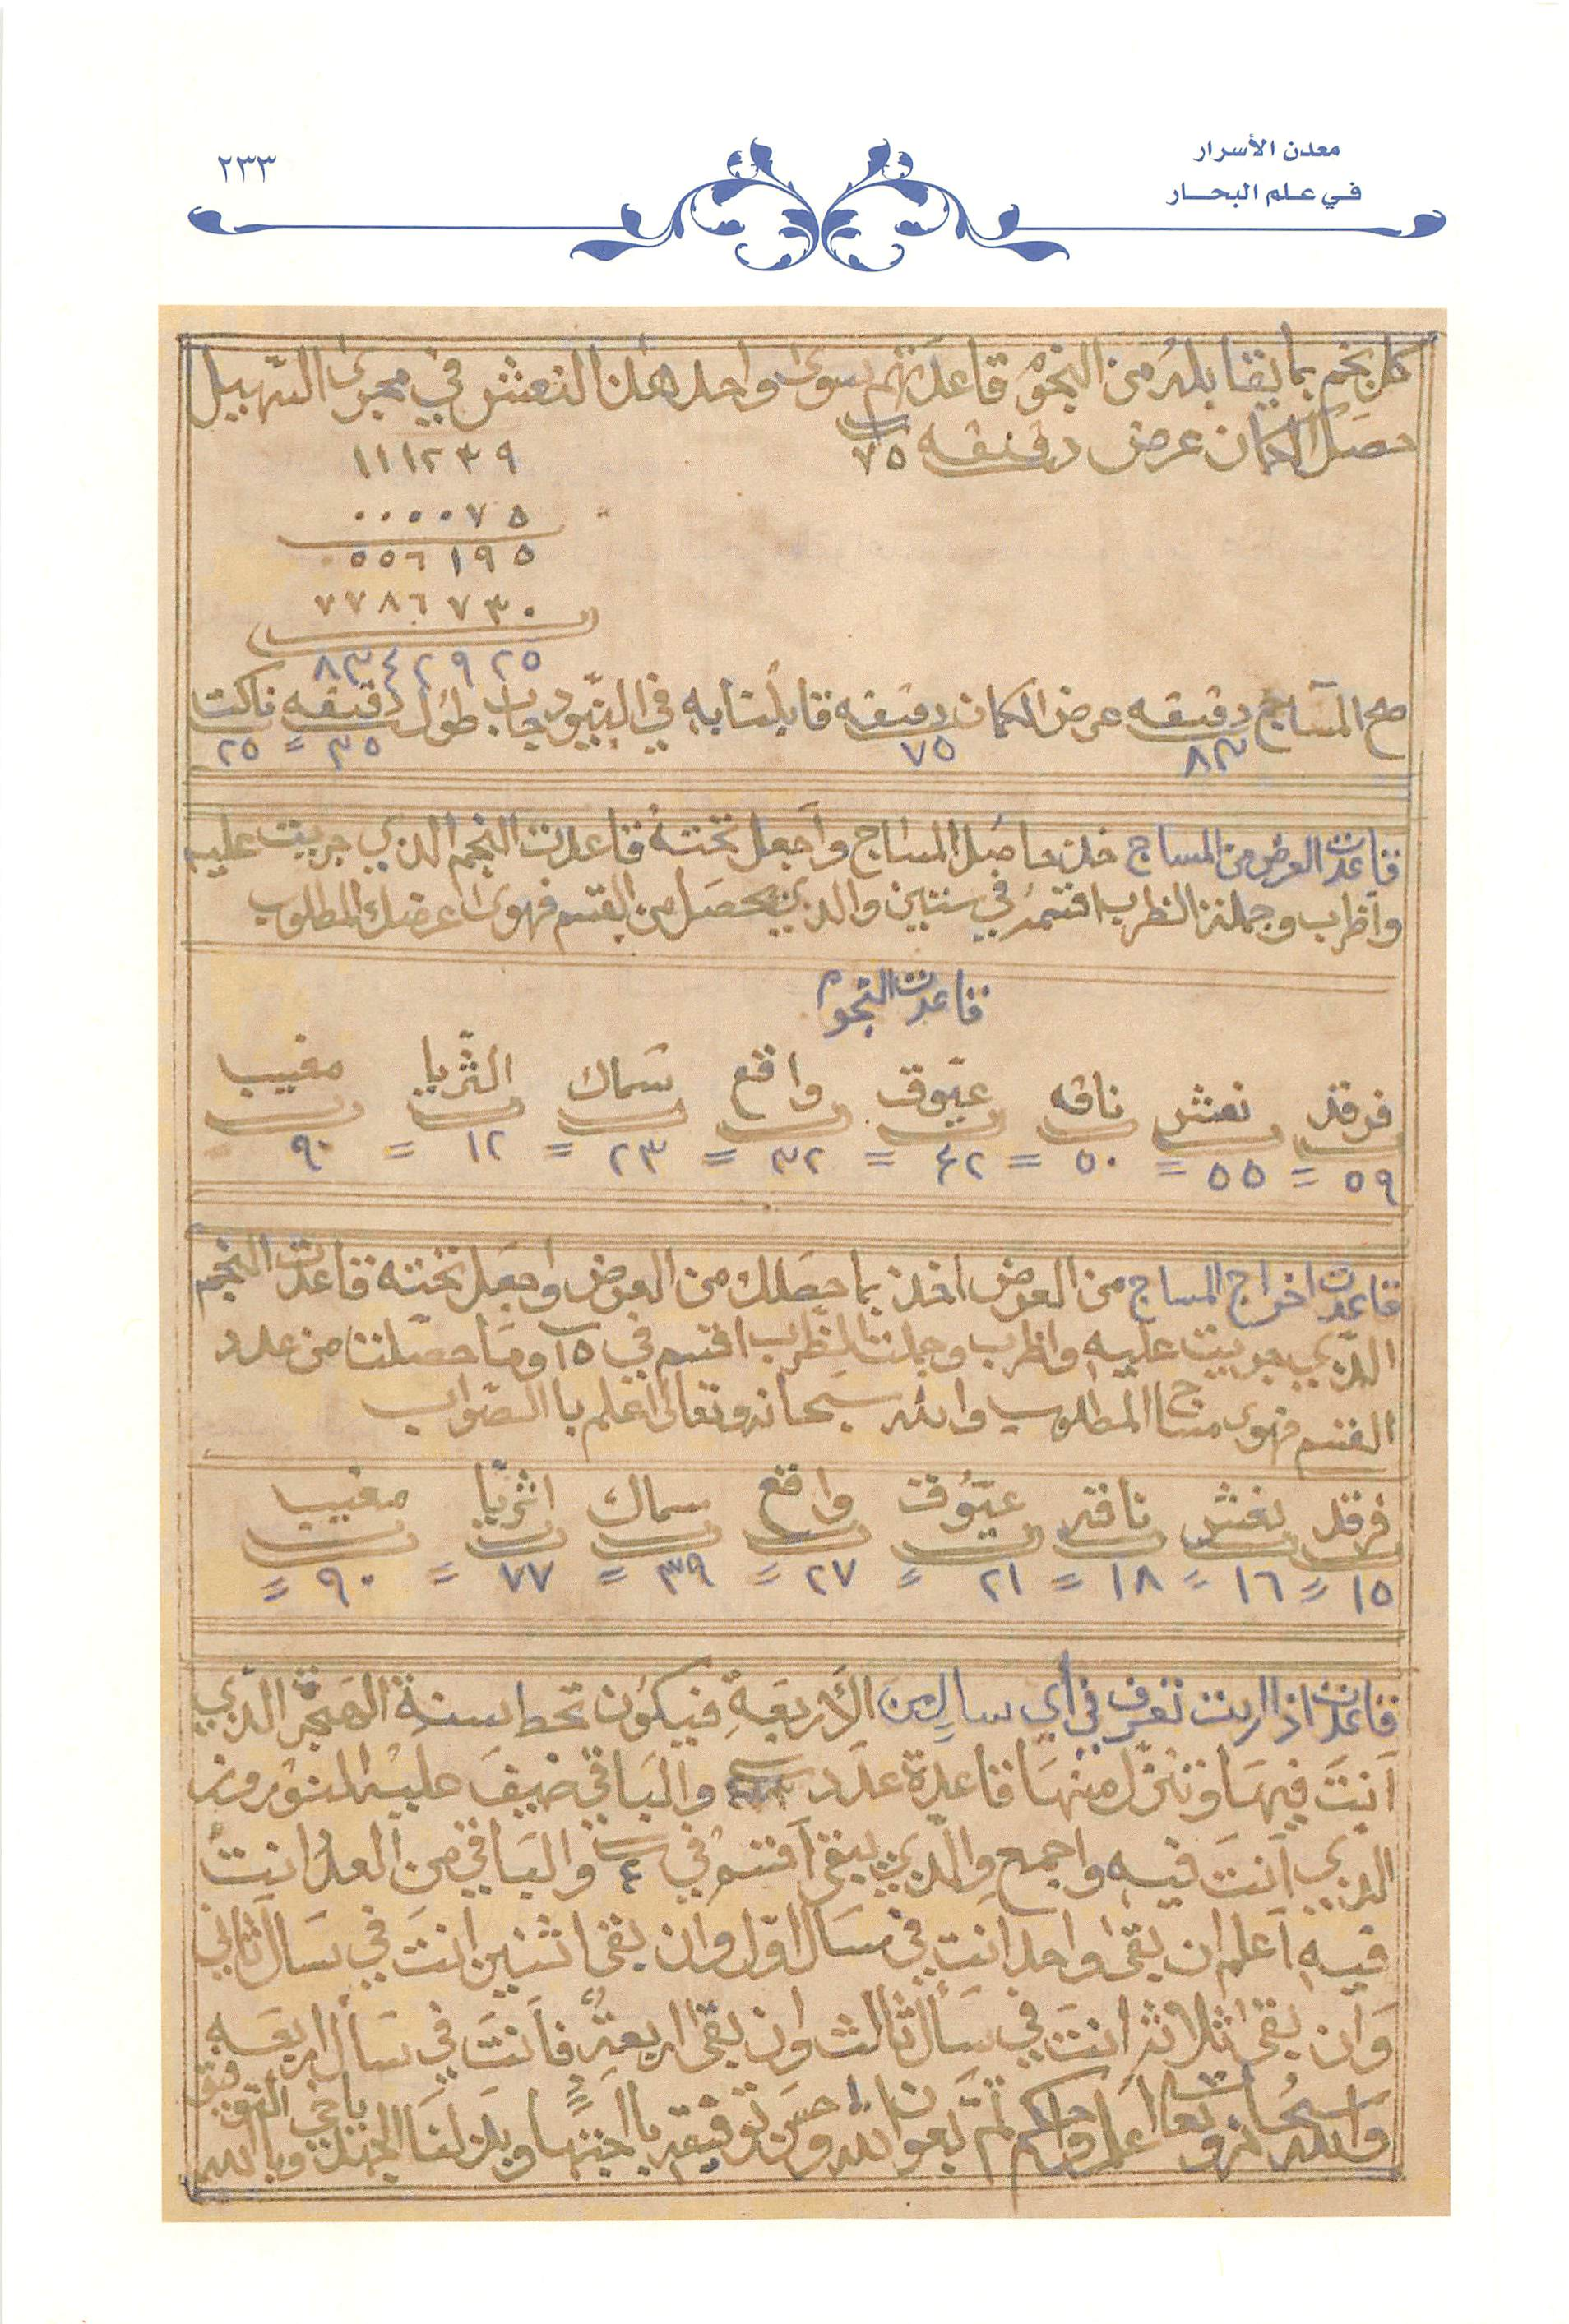 معدن الأسرار
في علم البحار
٢٣٣
كل نجم بما يقابله من النجوم قاعدتهم سوى واحد هذا النعش في مجرى السهيل
حصل الكمان عرض دقيقه ٧٥
١١١٢٣٩
٠٠٠٠٧٥
٥٥٦١٩٥
٧٧٨٦٧٣٠
٨٣٤٢٩٢٥
صح المساج دقيقه عرض الكمان دقيقه قابلنا به في البيود جاب طول دقيقه ناكتا
٨٣ ٧٥ ٣٥ = ٢٥
قاعدت العرض من المساج خذ حاصل المساج وآجعل تحته قاعدت النجم الذي جريت عليه
وآظرب وجملة الظرب اقسمه في ستين والذي يحصل من القسم فهوى عرضك المطلوب
قاعدت النجوم
فرقد نعش ناقه عيّوق واقع سماك الثريا مغيب
٥٩ = ٥٥ = ٥٠ = ٤٢ = ٣٢ = ٢٣ = ١٢ = ٩٠
قاعدت اخراج المساج من العرض اخذ بما حصلك من العرض وآجعل تحته قاعدت النجم
الذي جريت عليه واظرب وجملت الظرب اقسم في ١٥ وما حصلت من عدد
القسم فهوى مساج المطلوب والله سبحانه وتعالى اعلم باالصواب
فرقد نعش ناقه عيّوق واقع سماك اثريا مغيب
١٥ = ١٦ = ١٨ = ٢١ = ٢٧ = ٣٩ = ٧٧ = ٩٠ =
قاعدت اذا اردت تعرف في أي سال من الأربعة فيكون تحط سنة الهجرة الذي
آنت فيها وتنزل منها قاعدة عدد والباقي ضيف عليه المنوروز
الذي آنت فيه واجمع والذي يبقى آقسم في ٤ والباقي من العدد انت
فيه آعلم ان بقى واحد انت في سال اول وان بقى اثنين انت في سال ثاني
وان بقى ثلاثة انت في سال ثالث وان بقى اربعة فآنت في سال اربعه
والله سبحانه وتعالى اعلم واحكم تم بعون الله وحسن توفيقه وبالله التوفيق